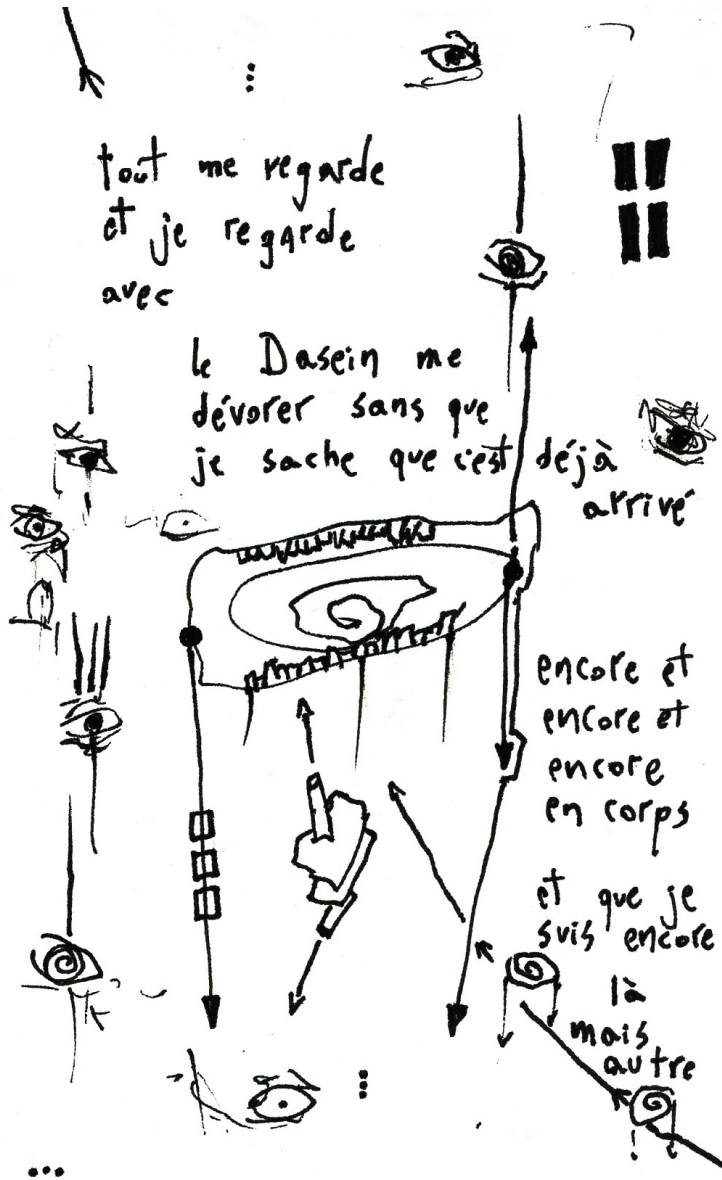 tout me regarde
et je regarde
avec
le Dasein me
dévorer sans que
je sache que c'est déjà
arrivé
encore et
encore et
encore
en corps
et que je
suis encore
là
mais
autre